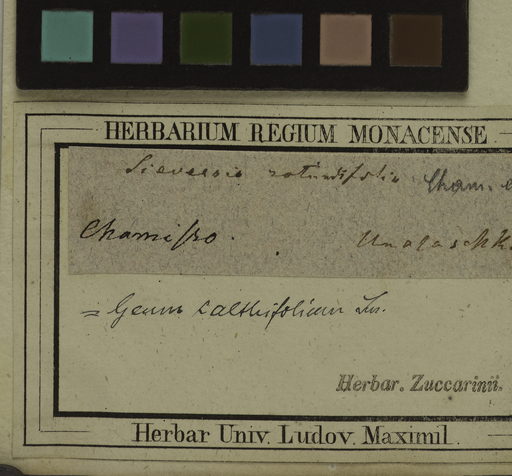 HERBARIUM REGIUM MONACENSE
Sieversia rotundifolia Cham.
Chamisso. Unalaschk
= Geum calthifolium Sm.
Herbar. Zuccarinii.
Herbar Univ. Ludov. Maximil.